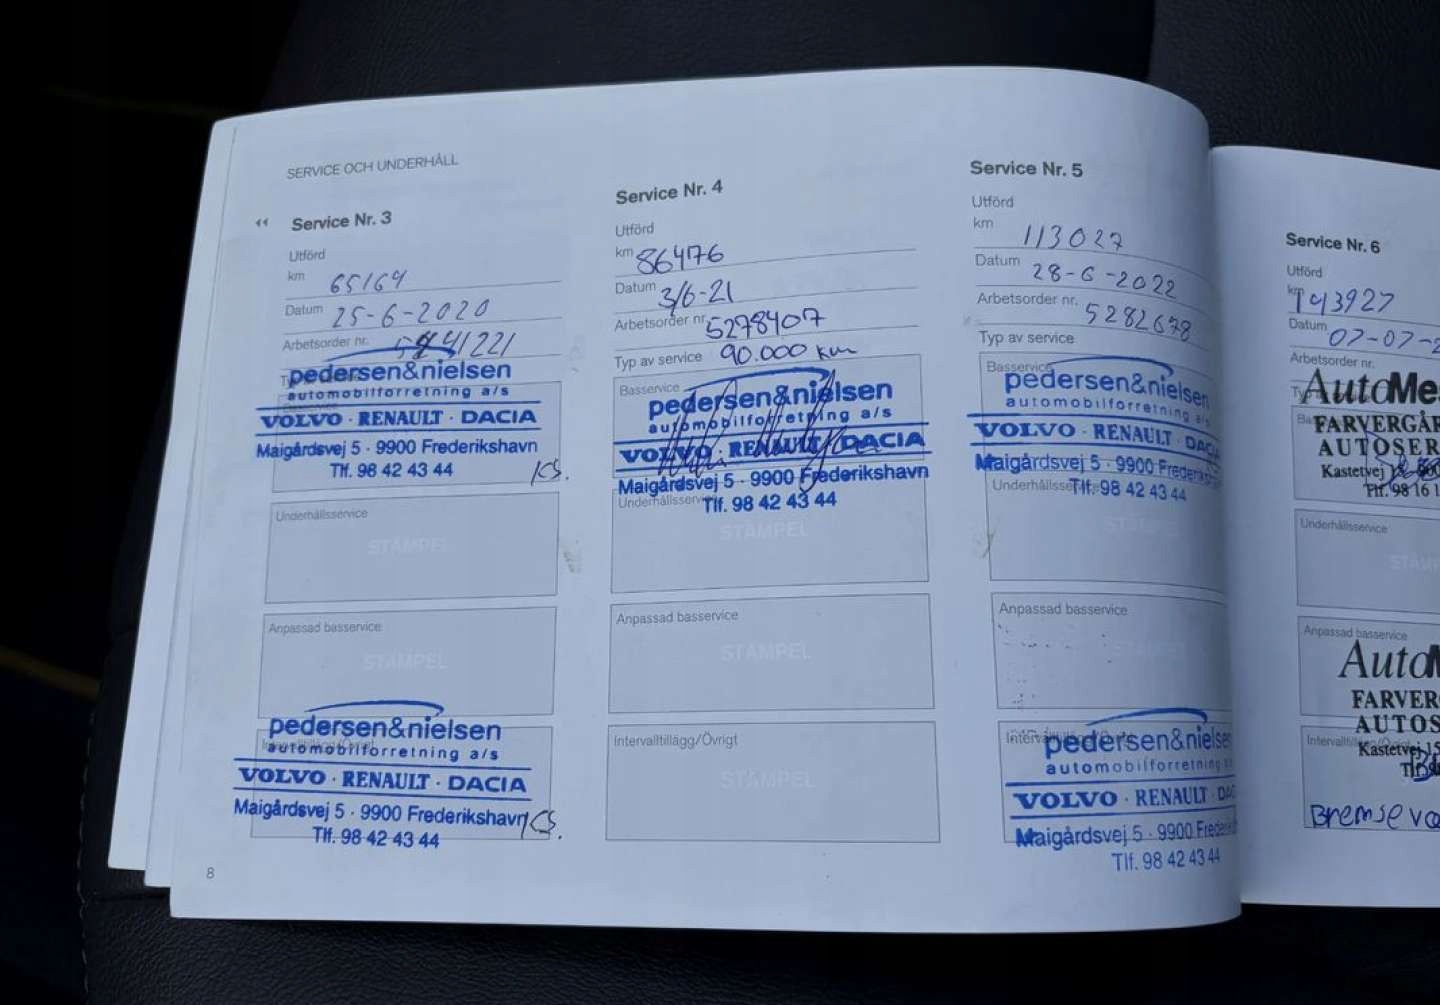 SERVICE OCH UNDERHÅLL
Service Nr. 3
Utförd
km 65164
Datum 25-6-2020
Arbetsorder nr.
pedersen&nielsen
automobilforretning a/s
VOLVO · RENAULT · DACIA
Maigårdsvej 5 · 9900 Frederikshavn
Tlf. 98 42 43 44
KS.
Underhållsservice
STÄMPEL
Anpassad basservice
STÄMPEL
pedersen&nielsen
automobilforretning a/s
VOLVO · RENAULT · DACIA
Maigårdsvej 5 · 9900 Frederikshavn
KS.
Tlf. 98 42 43 44
8
Service Nr. 4
Utförd
km 86476
Datum 3/6-21
Arbetsorder nr. 5278407
Typ av service 90.000 km
Basservice
pedersen&nielsen
automobilforretning a/s
VOLVO · RENAULT · DACIA
Maigårdsvej 5 · 9900 Frederikshavn
Underhållsservice
Tlf. 98 42 43 44
STÄMPEL
Anpassad basservice
STÄMPEL
Intervalltillägg/Övrigt
STÄMPEL
Service Nr. 5
Utförd
km 113027
Datum 28-6-2022
Arbetsorder nr. 5282678
Typ av service
Basservice
pedersen&nielsen
automobilforretning a/s
VOLVO · RENAULT · DAC
Maigårdsvej 5 · 9900 Frederiks
Underhållsservice
Tlf. 98 42 43 44
STÄMPEL
Anpassad basservice
STÄMPEL
pedersen&nielse
automobilforretning
VOLVO · RENAULT · DA
Maigårdsvej 5 · 9900 Frede
Tlf. 98 42 43 44
Service Nr. 6
Utförd
km 143927
Datum 07-07-2
Arbetsorder nr.
AutoMe
FARVERGÅR
AUTOSER
Kastetvej
Tlf. 98 16 1
Underhållsservice
STÄMP
Anpassad basservice
Auto
FARVER
AUTOS
Kastetvej 15
Bremsevæ